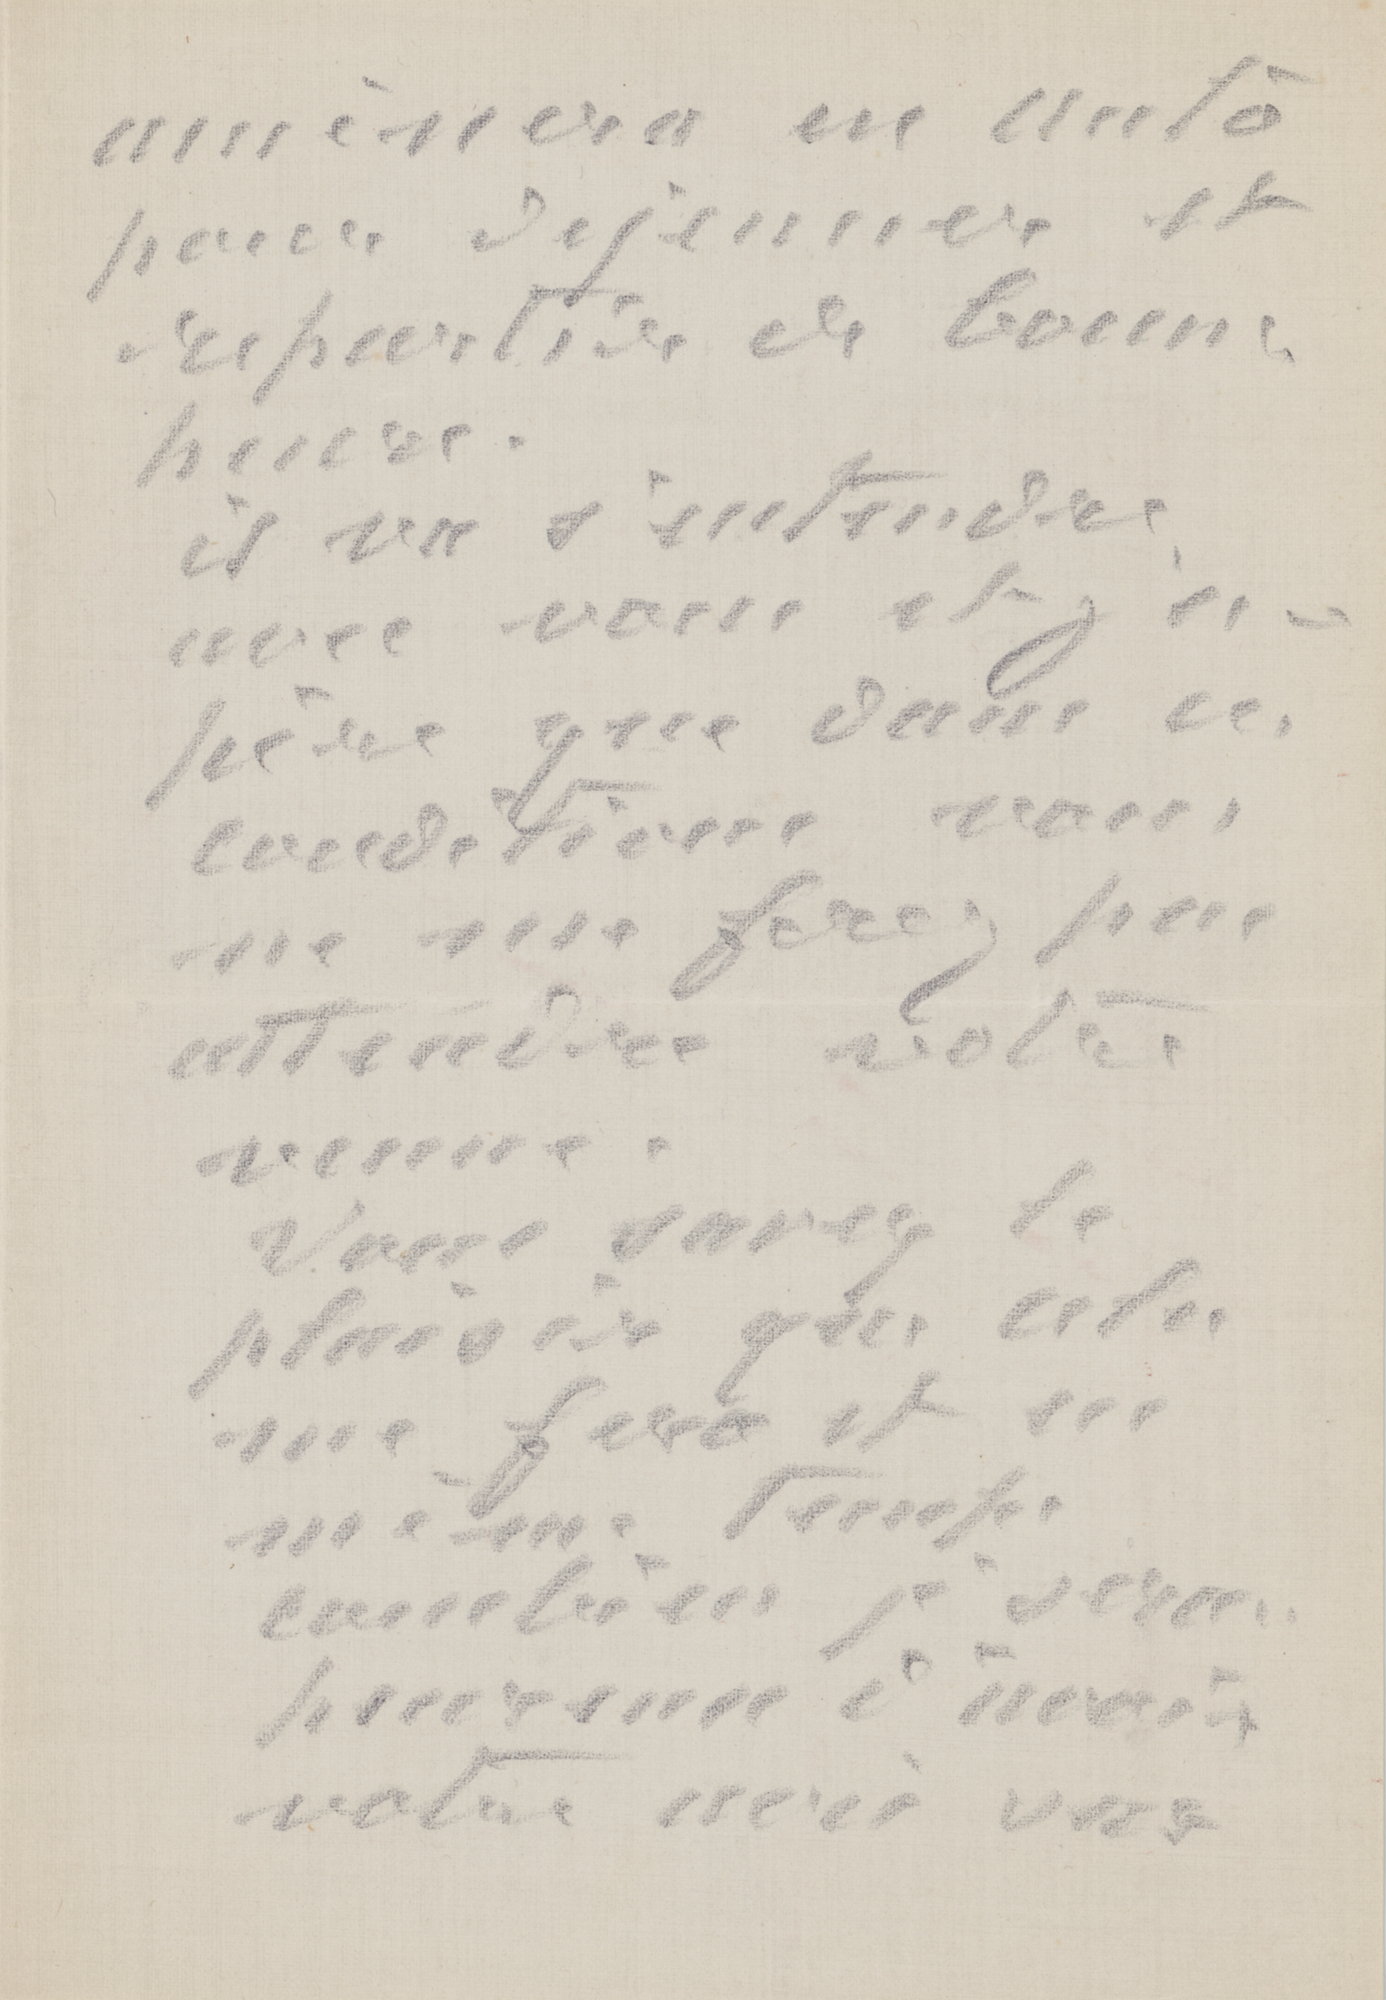 amènera en auto
pour dejeuner et
repartir de bonne
heure.
il va s'entendre
avec vous et j'es-
père que dans ces
conditions vous
ne me ferez pas
attendre votre
venue.
Vous savez le
plaisir que cela
me fera et en
même temps
combien je serai
heureux d'avoir
votre avis sur